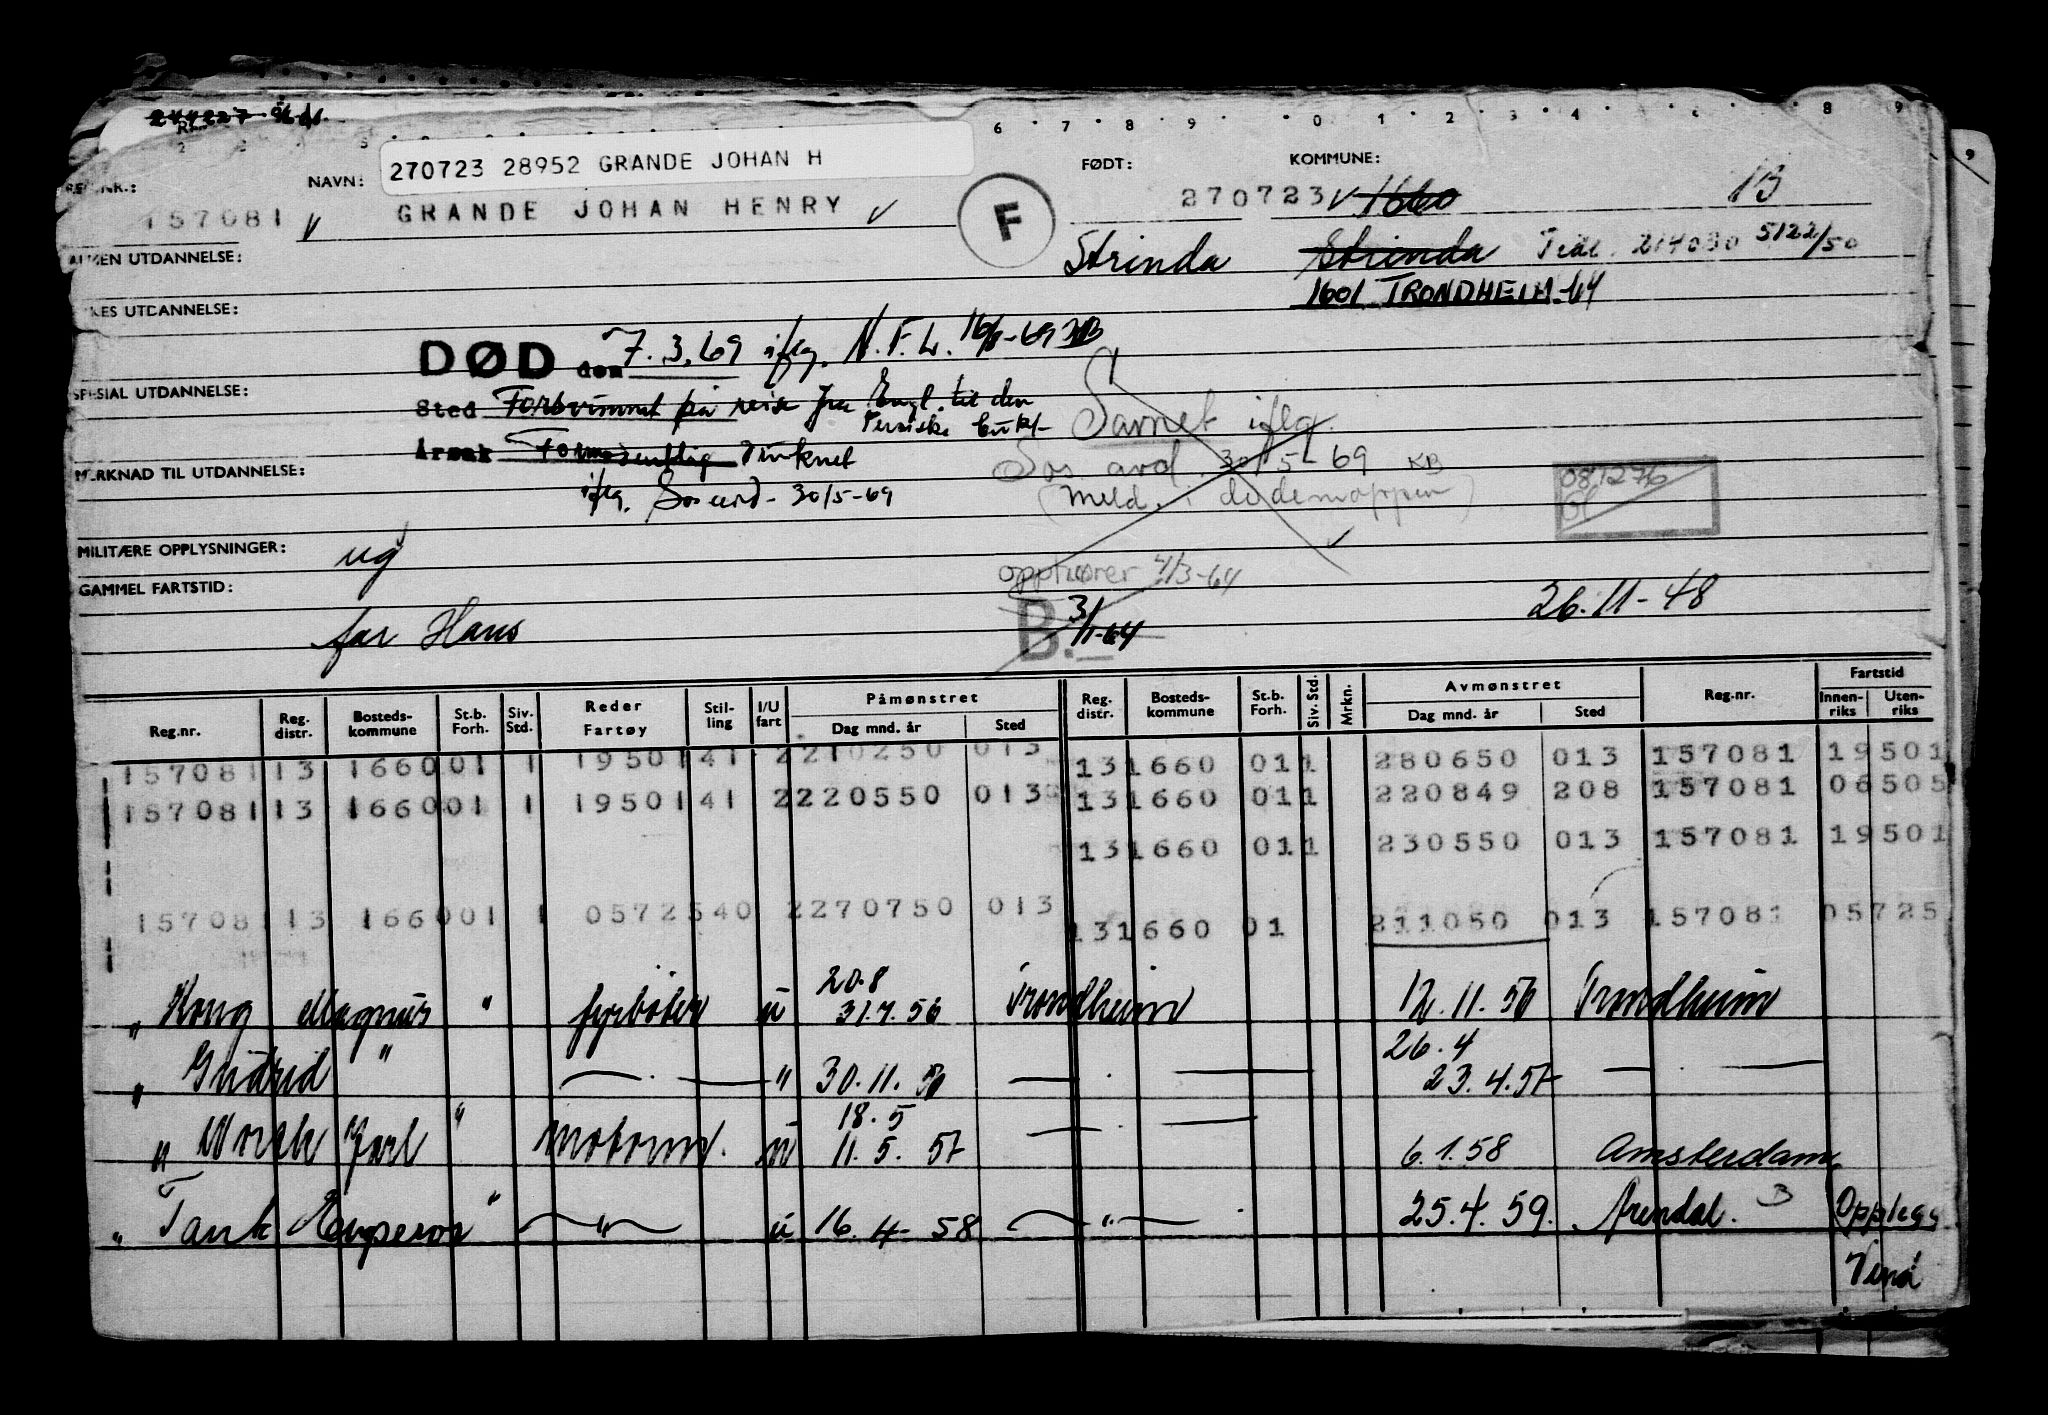 244227
6 7 8 9 0 1 2 3 4 8 9
270723 28952 GRANDE JOHAN H
NAVN: FØDT: KOMMUNE:
157081 GRANDE JOHAN HENRY F 270723 1660 13
ALMEN UTDANNELSE: Strinda Strinda 214030 5122/50
1601 TRONDHEIM-64
DØD den 7.3.69 iflg. N.F.L.
SPESIAL UTDANNELSE:
Sted Forsvunnet på reise fra Engl. til den
Persiske bukt
Savnet iflg.
Årsak Formodentlig druknet
Sos avd. 30/5-69 KB
MERKNAD TIL UTDANNELSE:
iflg. Sos avd- 30/5-69
(meld. i dødemappen)
081276
MILITÆRE OPPLYSNINGER: ug
opphører 4/3-64
GAMMEL FARTSTID:
B. 3/1-64
26.11-48
far Hans
Reg.nr. Reg. distr. Bosteds-kommune St.b. Forh. Siv. Std. Reder Fartøy Stil-ling I/U fart Påmønstret Dag mnd. år Sted Reg. distr. Bosteds-kommune St.b. Forh. Siv. Std. Mrkn. Avmønstret Dag mnd. år Sted Reg.nr. Fartstid Innen-riks Uten-riks
157081 13 1660 01 1 19501 41 2 210250 013 13 1660 01 1 280650 013 157081 19501
157081 13 1660 01 1 19501 41 2 220550 013 13 1660 01 1 220849 208 157081 06505
13 1660 01 1 230550 013 157081 19501
157081 13 1660 01 1 05725 40 2 270750 013 13 1660 01 211050 013 157081 05725
20.8
" Kong Magnus " fyrbøter u 31.7.56 Trondheim 12.11.56 Trondheim
26.4
" Gudrid " — . — " 30.11.56 — . — 23.4.57 — . —
18.5
" Norsk Jarl " motorm. u 11.5.57 — . — 6.1.58 Amsterdam
" Tank Emperor " — " — u 16.4-58 — " — 25.4.59. Arendal. B Opplegg